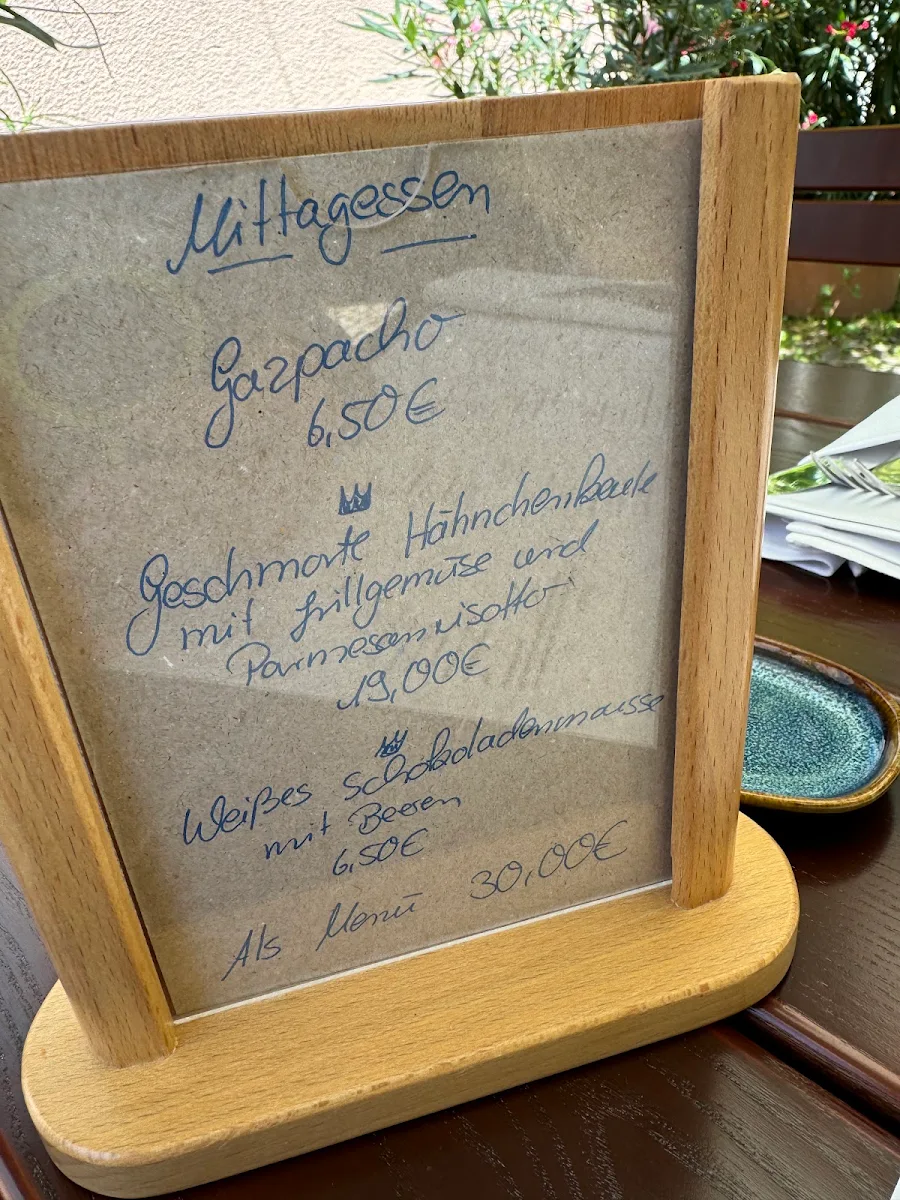 Mittagessen
Gazpacho
6,50€
Geschmorte Hähnchenkeule
mit Grillgemüse und
Parmesanrisotto
19,00€
Weißes Schokoladenmousse
mit Beeren
6,50€
Als Menü 30,00€